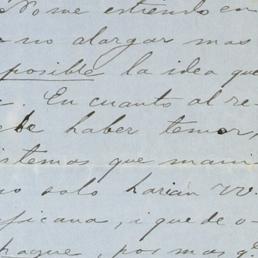 No me estiendo en
no alargar mas
posible la idea que
. En cuanto al re-
be haber temor,
istemas que mani
no solo harian VV
ficana, i que de o-
haque, por mas qe.